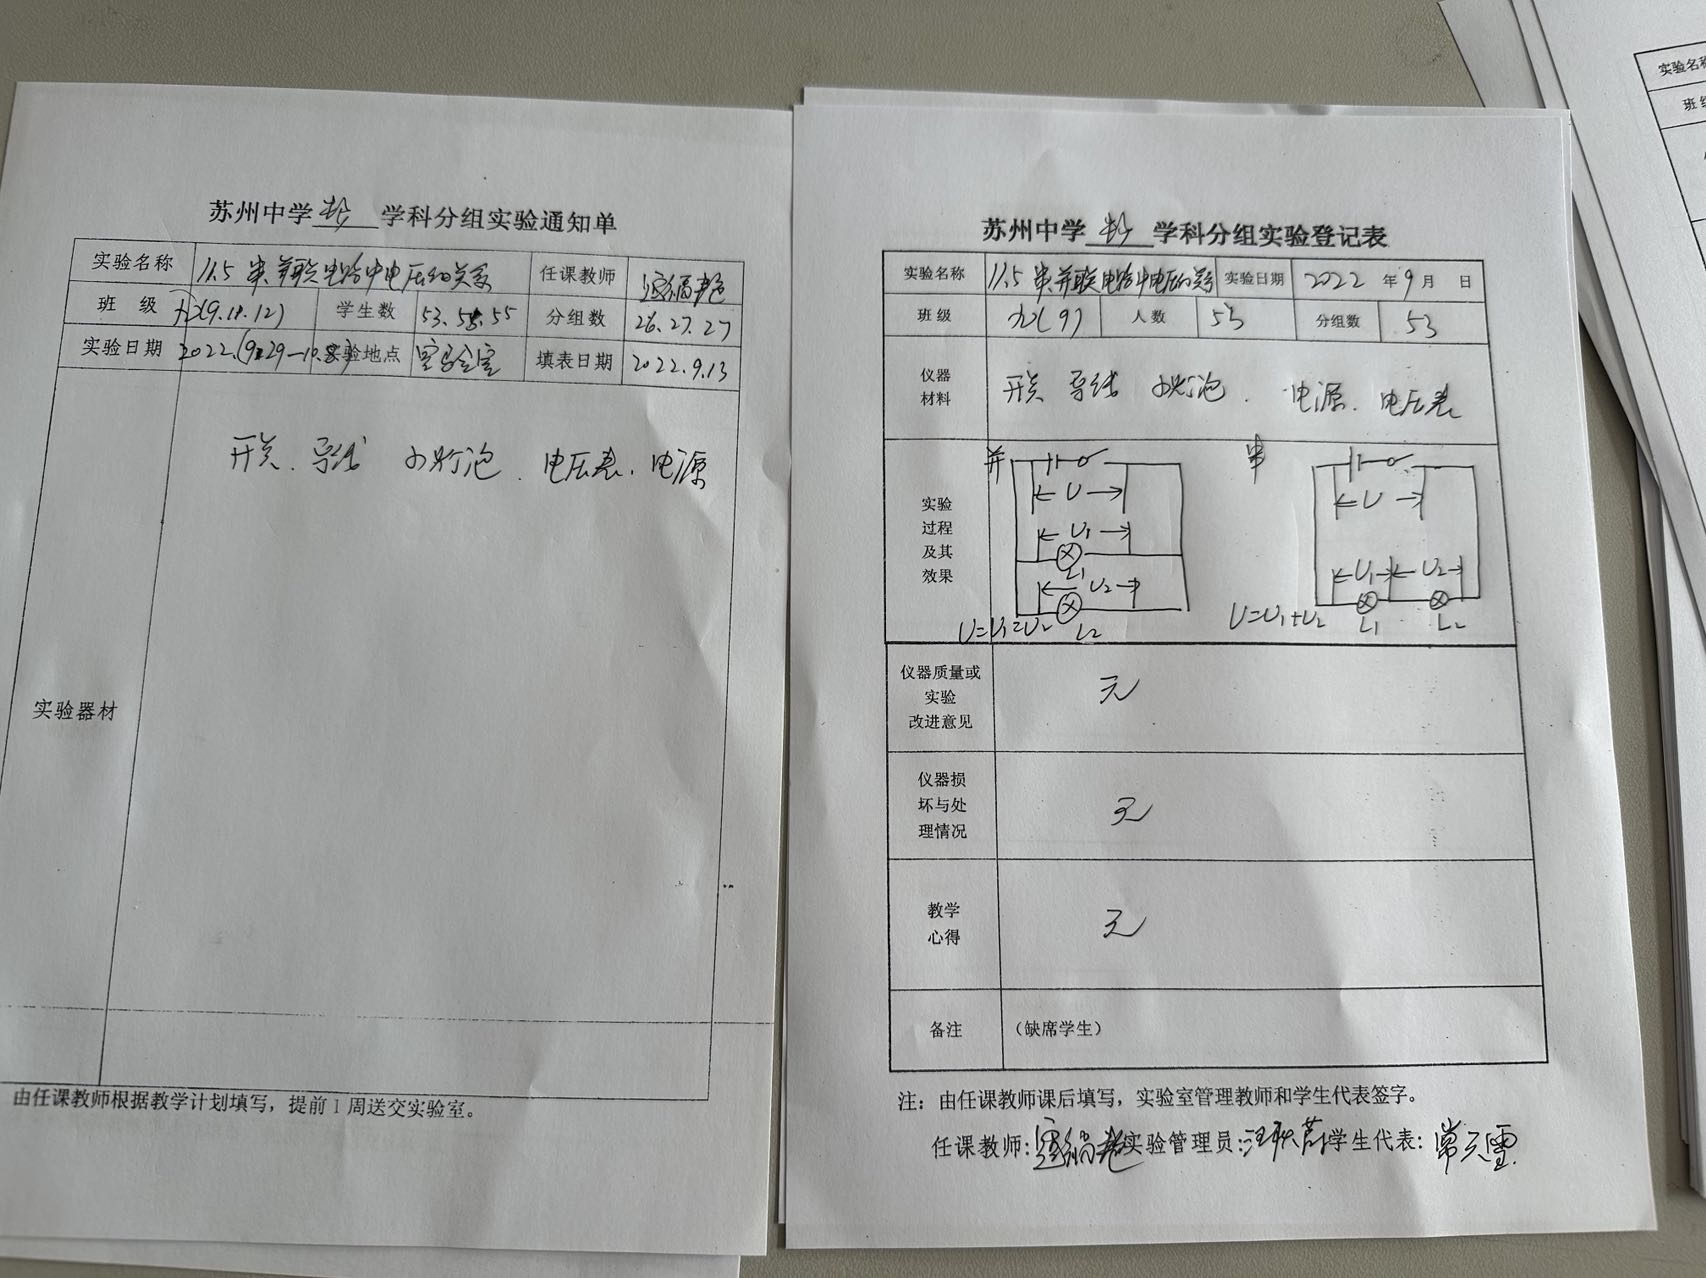 苏州中学 物 学科分组实验通知单
实验名称 11.5 串、并联电路中电压的关系 任课教师
班 级 九(9.11.12) 学生数 53.54.55 分组数 26.27.27
实验日期 2022.(9.29—10.8) 实验地点 实验室 填表日期 2022.9.13
实验器材
开关、导线 小灯泡、电压表、电源
由任课教师根据教学计划填写，提前1周送交实验室。
苏州中学 物 学科分组实验登记表
实验名称 11.5 串、并联电路中电压的关系 实验日期 2022 年 9 月 日
班 级 九(9) 人 数 53 分组数 53
仪器
材料
开关 导线 小灯泡、电源、电压表
实验
过程
及其
效果
并
U
U₁
L₁
U₂
L₂
U=U₁=U₂
串
U
U₁ U₂
L₁ L₂
U=U₁+U₂
仪器质量或
实验
改进意见
无
仪器损
坏与处
理情况
无
教学
心得
无
备注 （缺席学生）
注：由任课教师课后填写，实验室管理教师和学生代表签字。
任课教师: 实验管理员: 学生代表: 常天雪
实验名称
班 级